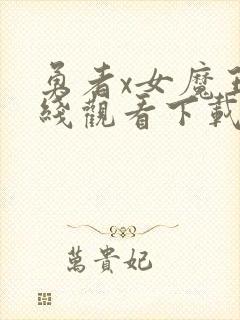 勇者x女魔王
綫觀看下載
萬貴妃